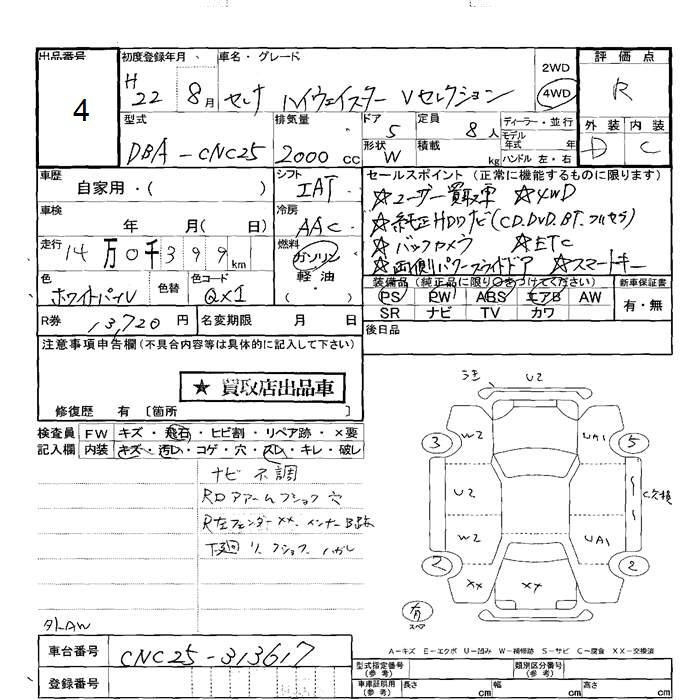 出品番号 初度登録年月 車名・グレード 評価点
4 H22 8月 セレナ ハイウェイスター Vセレクション 2WD 4WD R
型式 排気量 ドア 定員 ディーラー・並行 外装 内装
DBA-CNC25 2000cc 5 8人 モデル年式 年 D C
形状 W 積載 kg ハンドル 左・右
車歴 シフト セールスポイント(正常に機能するものに限ります)
自家用・( ) IAT ☆ユーザー買取車 ☆4WD
車検 冷房 ☆純正HDDナビ(CD.DVD.BT.フルセグ)
年 月( 日) AAC ☆バックカメラ ☆ETC
走行 14万0千399km 燃料 ガソリン・軽油・ ☆両側パワースライドドア ☆スマートキー
色 色替 色コード 装備品(純正品に限り○をつけてください) 新車保証書
ホワイトパール QX1 PS PW ABS エアB AW 有・無
R券 13,720円 名変期限 月 日 SR ナビ TV カワ
注意事項申告欄(不具合内容等は具体的に記入して下さい) 後日品
★買取店出品車
修復歴 有〔箇所 〕
検査員 FW キズ・飛石・ヒビ割・リペア跡・×要
記入欄 内装 キズ・汚レ・コゲ・穴・スレ・キレ・破レ
ナビ不調
穴
R左フェンダーXX.
下廻り
U2
3 W2 UA1 5
U2
W2 UA1
2 XX XX 2
有
スペア
A-キズ E-エクボ U-凹み W-補修跡 S-サビ C-腐食 XX-交換済
車台番号 CNC25-313617
登録番号
型式指定番号(参考) 類別区分番号(参考)
車庫証明用(参考) 長さ cm 幅 cm 高さ cm